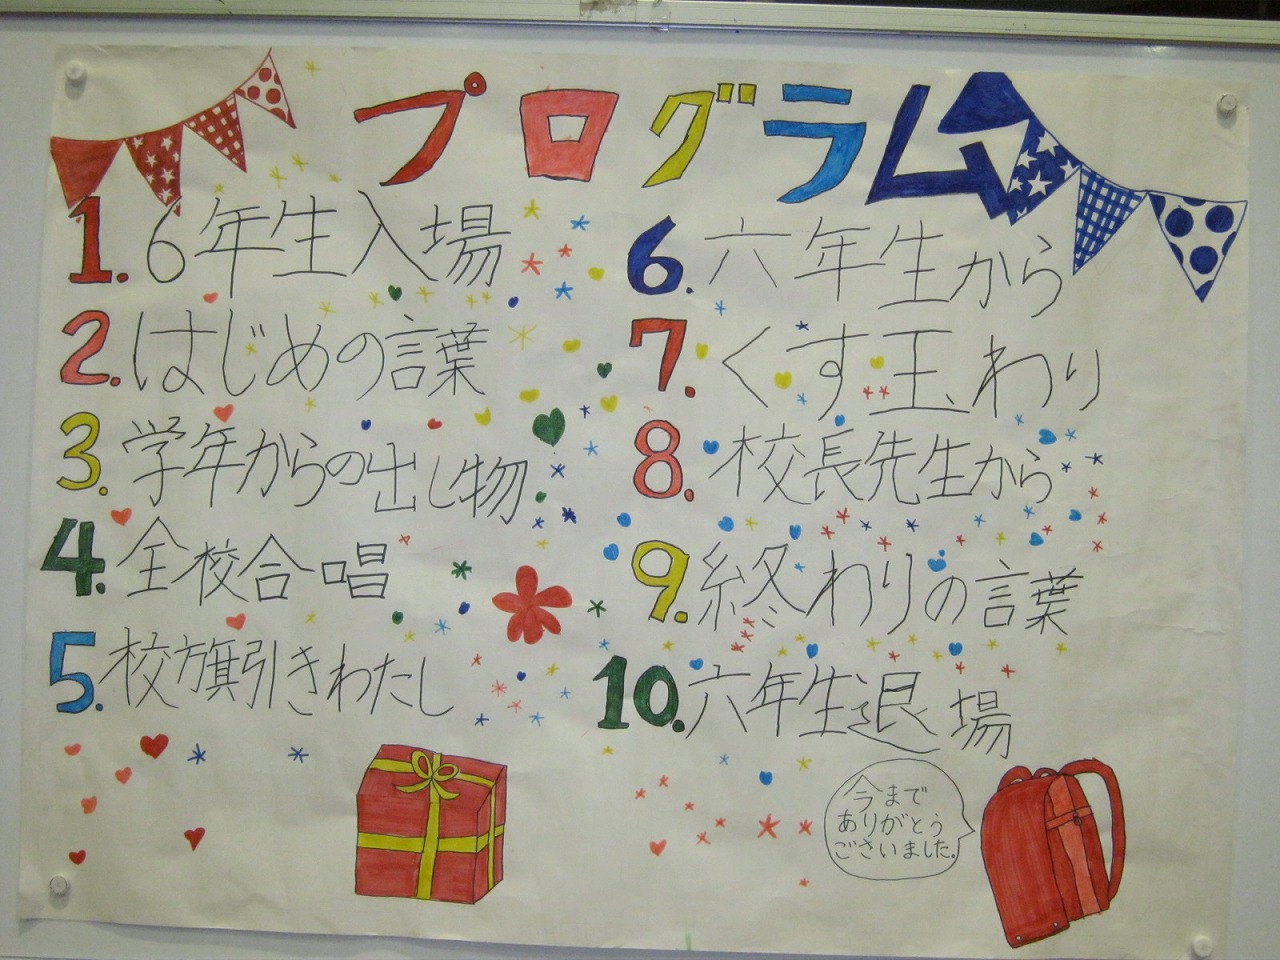 プログラム
1. 6年生入場
2. はじめの言葉
3. 学年からの出し物
4. 全校合唱
5. 校旗引きわたし
6. 六年生から
7. くす玉わり
8. 校長先生から
9. 終わりの言葉
10. 六年生退場
今まで
ありがとう
ございました。